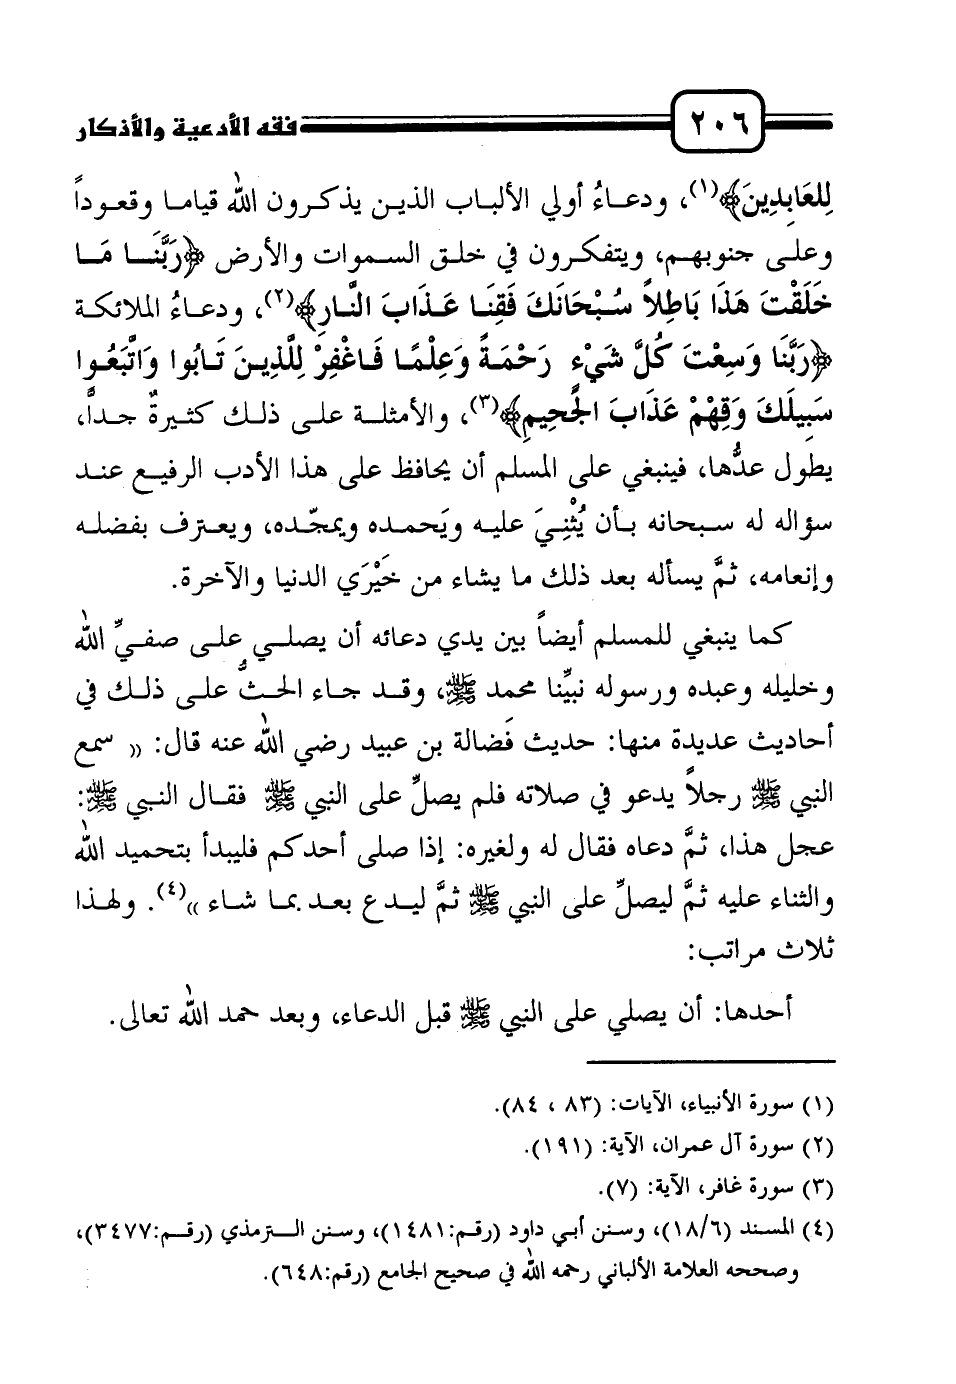 ٢٠٦ فقه الأدعية والأذكار
لِلعَابِدِينَ﴾(١)، ودعـاءُ أولي الألبـاب الذيـن يذكـرون الله قيامـا وقعـوداً
وعلـى جنوبهـم، ويتفكـرون في خلـق السـموات والأرض ﴿رَبَّنَـا مَـا
خَلَقْتَ هَذَا بَاطِلاً سُبْحَانَكَ فَقِنَا عَـذَابَ النَّـارِ﴾(٢)، ودعـاءُ الملائكـة
﴿رَبَّنَا وَسِعْتَ كُلَّ شَيْءٍ رَحْمَةً وَعِلْمًا فَـاغْفِرْ لِلَّذِيـنَ تَـابُوا وَاتَّبَعُـوا
سَبِيلَكَ وَقِهْمْ عَذَابَ الجَّحِيمِ﴾(٣)، والأمثلـة علـى ذلـك كثـيرةٌ جـداًّ،
يطول عدُّها، فينبغي على المسلم أن يحافظ على هذا الأدب الرفيـع عنـد
سؤاله له سـبحانه بـأن يُثْنِـيَ عليـه ويَحمـده ويمجّـده، ويعـترف بفضلـه
وإنعامه، ثمَّ يسأله بعد ذلك ما يشاء من خَيْرَي الدنيا والآخرة.
كمـا ينبغـي للمسـلم أيضـاً بين يدي دعائه أن يصلـي علـى صفـيِّ الله
وخليله وعبده ورسوله نبيِّنا محمد ﷺ، وقـد جـاء الحـثُّ علـى ذلـك في
أحاديث عديدة منها: حديث فَضالة بن عبيد رضي الله عنه قال: « سمع
النبي ﷺ رجلاً يدعو في صلاته فلم يصلِّ على النبي ﷺ فقـال النـبي ﷺ:
عجل هذا، ثمَّ دعاه فقال له ولغيره: إذا صلى أحدكم فليبدأ بتحميد الله
والثناء عليه ثمَّ ليصلِّ على النبي ﷺ ثمَّ ليـدع بعـد بمـا شـاء »(٤). ولهـذا
ثلاث مراتب:
أحدها: أن يصلي على النبي ﷺ قبل الدعاء، وبعد حمد الله تعالى.
(١) سورة الأنبياء، الآيات: (٨٣ ، ٨٤).
(٢) سورة آل عمران، الآية: (١٩١).
(٣) سورة غافر، الآية: (٧).
(٤) المسند (١٨/٦)، وسنن أبي داود (رقم:١٤٨١)، وسنن الـترمذي (رقـم:٣٤٧٧)،
وصححه العلامة الألباني رحمه الله في صحيح الجامع (رقم:٦٤٨).